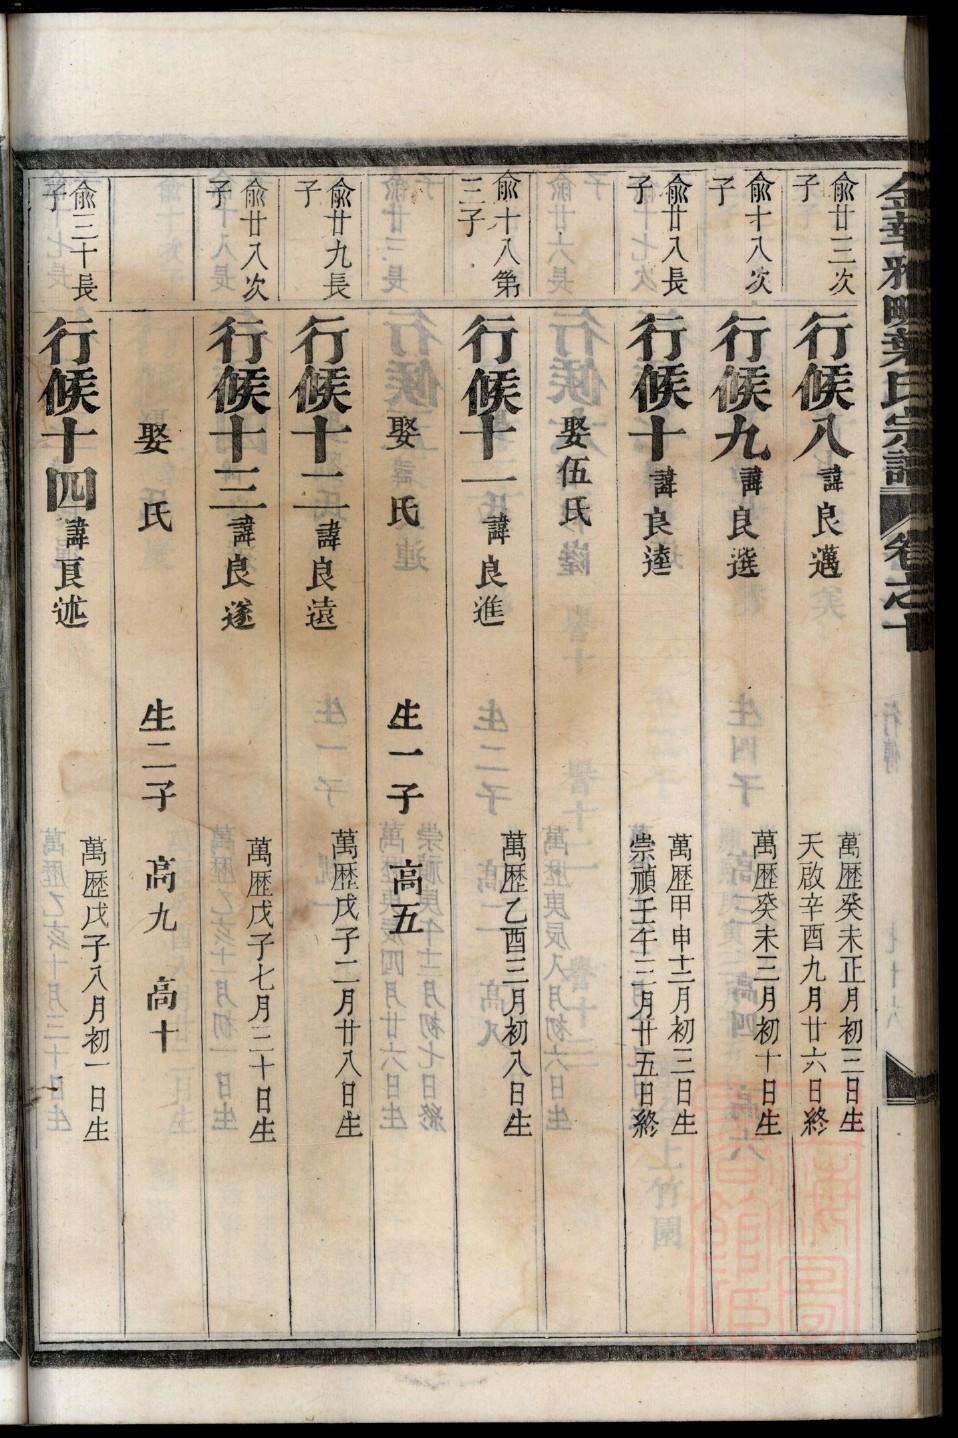 金華雅畈葉氏宗譜 卷之十
俞廿三次子
行候八 諱良邁
萬歷癸未正月初三日生
天啟辛酉九月廿六日終
俞十八次子
行候九 諱良選
萬歷癸未三月初十日生
俞廿八長子
行候十 諱良達
萬歷甲申十二月初三日生
崇禎壬午三月廿五日終
娶伍氏
俞十八第三子
行候十一 諱良進
萬歷乙酉三月初八日生
娶 氏 生一子 高五
俞廿九長子
行候十二 諱良遠
萬歷戊子二月廿八日生
俞廿八次子
行候十三 諱良遂
萬歷戊子七月二十日生
娶 氏 生二子 高九 高十
俞三十長子
行候十四 諱良述
萬歷戊子八月初一日生